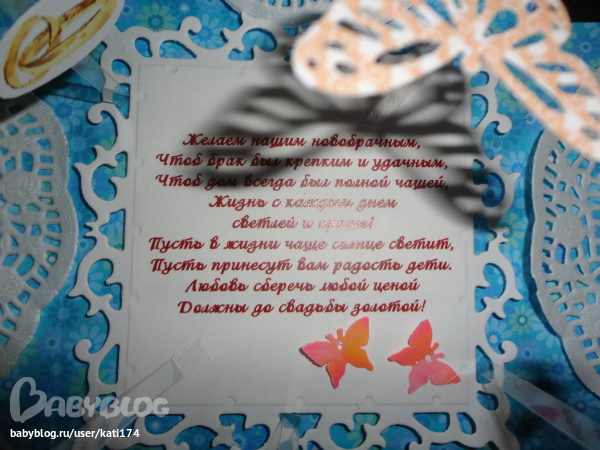 Желаем нашим новобрачным,
Чтоб брак был крепким и удачным,
Чтоб дом всегда был полной чашей,
Жизнь с каждым днем
светлей и краше!
Пусть в жизни чаще солнце светит,
Пусть принесут вам радость дети.
Любовь сберечь любой ценой
Должны до свадьбы золотой!
BABYBLOG
babyblog.ru/user/kati174